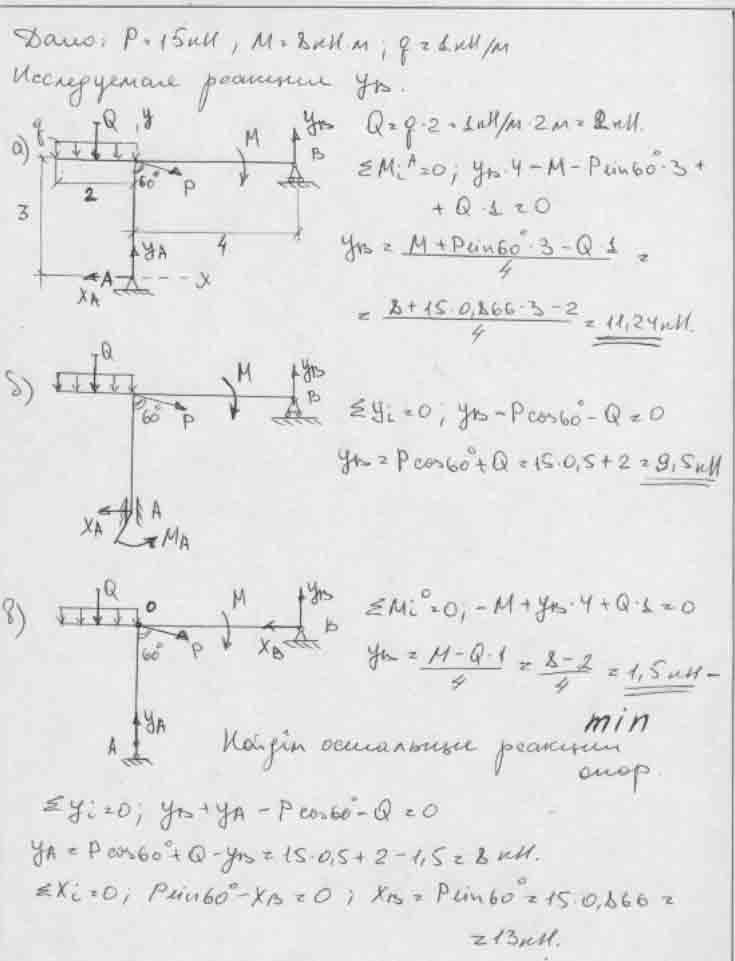 Дано: P = 15 кН, M = 8 кН·м; q = 1 кН/м
Исследуемая реакция YB.
а)
q
Q
y
M
YB
B
60°
P
2
3
4
YA
A
XA
x
Q = q·2 = 1 кН/м·2м = 2 кН.
ΣMiA = 0; YB·4 − M − Psin60°·3 +
+ Q·1 = 0
YB = (M + Psin60°·3 − Q·1)/4 =
= (8 + 15·0,866·3 − 2)/4 = 11,24 кН.
б)
Q
M
YB
B
60°
P
XA
A
MA
ΣYi = 0; YB − Pcos60° − Q = 0
YB = Pcos60° + Q = 15·0,5 + 2 = 9,5 кН
в)
Q
O
M
YB
B
60°
P
XB
YA
A
ΣMiO = 0; −M + YB·4 + Q·1 = 0
YB = (M − Q·1)/4 = (8 − 2)/4 = 1,5 кН −
min
Найдём остальные реакции
опор.
ΣYi = 0; YB + YA − Pcos60° − Q = 0
YA = Pcos60° + Q − YB = 15·0,5 + 2 − 1,5 = 8 кН.
ΣXi = 0; Psin60° − XB = 0; XB = Psin60° = 15·0,866 =
= 13 кН.